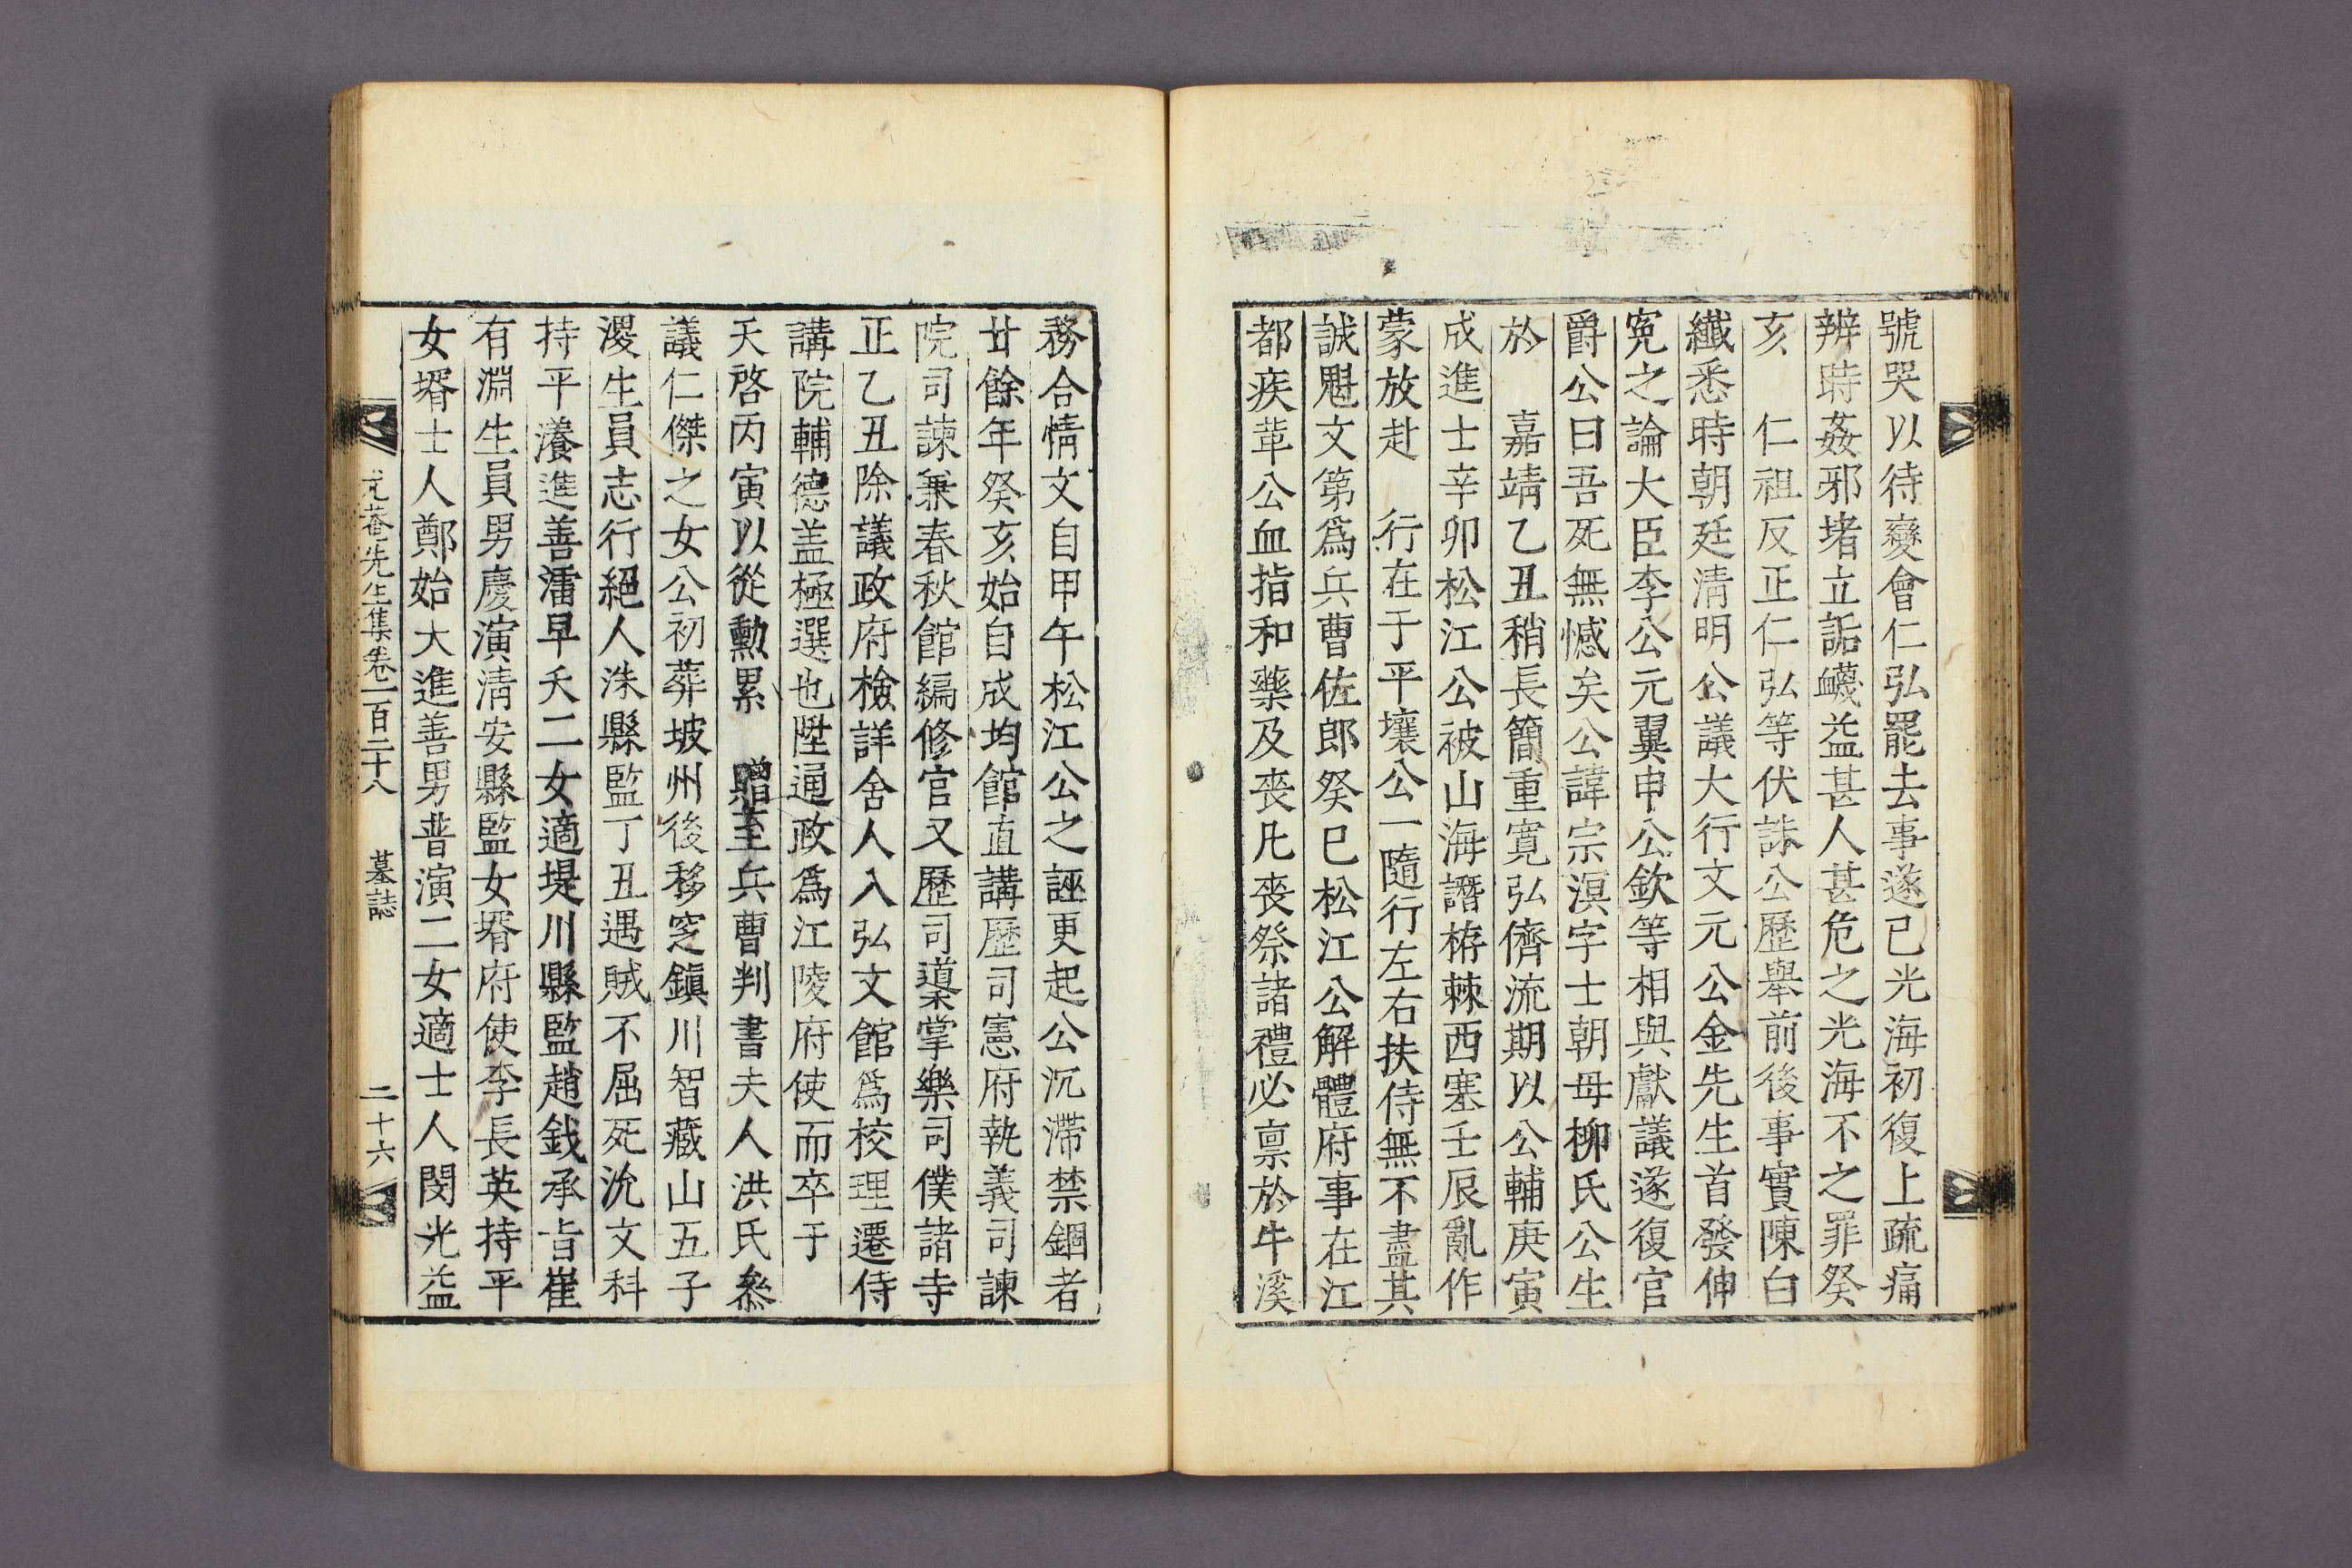 號哭以待變會仁弘罷去事遂已光海初復上疏痛
辨時姦邪堵立詬衊益甚人甚危之光海不之罪癸
亥　仁祖反正仁弘等伏誅公歷擧前後事實陳白
纖悉時朝廷淸明公議大行文元公金先生首發伸
寃之論大臣李公元翼申公欽等相與獻議遂復官
爵公曰吾死無憾矣公諱宗溟字士朝母柳氏公生
於　嘉靖乙丑稍長簡重寬弘儕流期以公輔庚寅
成進士辛卯松江公被山海譖栫棘西塞壬辰亂作
蒙放赴　行在于平壤公一隨行左右扶侍無不盡其
誠魁文第爲兵曹佐郞癸巳松江公解體府事在江
都疾革公血指和藥及喪凡喪祭諸禮必禀於牛溪
務合情文自甲午松江公之誣更起公沉滯禁錮者
廿餘年癸亥始自成均館直講歷司憲府執義司諫
院司諫兼春秋館編修官又歷司導掌樂司僕諸寺
正乙丑除議政府檢詳舍人入弘文館爲校理遷侍
講院輔德盖極選也陞通政爲江陵府使而卒于
天啓丙寅以從勳累　贈至兵曹判書夫人洪氏叅
議仁傑之女公初葬坡州後移窆鎭川智藏山五子
溭生員志行絕人洙縣監丁丑遇賊不屈死沇文科
持平瀁進善濡早夭二女適堤川縣監趙銊承旨崔
有淵生員男慶演淸安縣監女壻府使李長英持平
女壻士人鄭始大進善男普演二女適士人閔光益
尤菴先生集卷一百七十八　墓誌　二十六